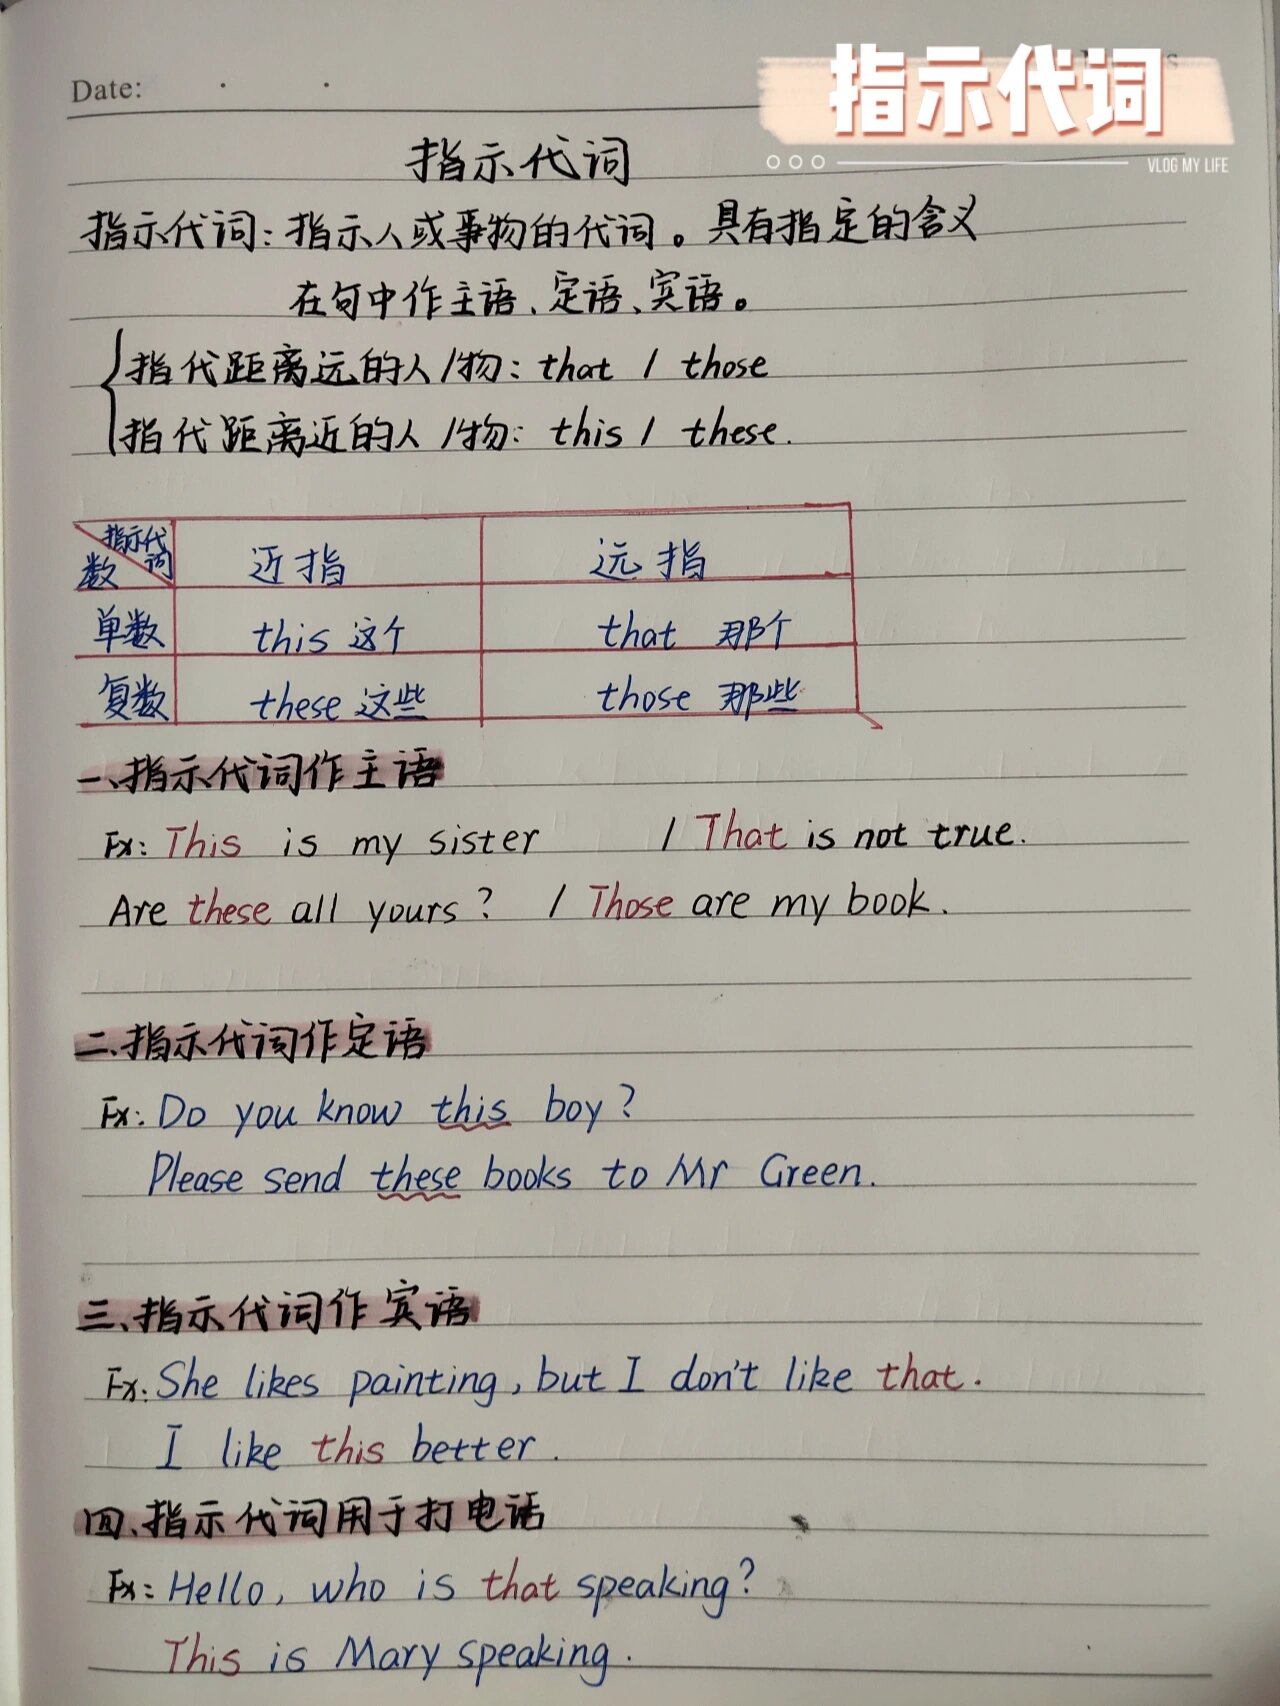 Date:
指示代词
VLOG MY LIFE
指示代词
指示代词：指示人或事物的代词。具有指定的含义
在句中作主语、定语、宾语。
指代距离远的人/物：that / those
指代距离近的人/物：this / these.
指示代词
数 近指 远指
单数 this 这个 that 那个
复数 these 这些 those 那些
一、指示代词作主语
Ex: This is my sister / That is not true.
Are these all yours? / Those are my book.
二、指示代词作定语
Ex: Do you know this boy?
Please send these books to Mr Green.
三、指示代词作宾语
Ex: She likes painting, but I don't like that.
I like this better.
四、指示代词用于打电话
Ex: Hello, who is that speaking?
This is Mary speaking.